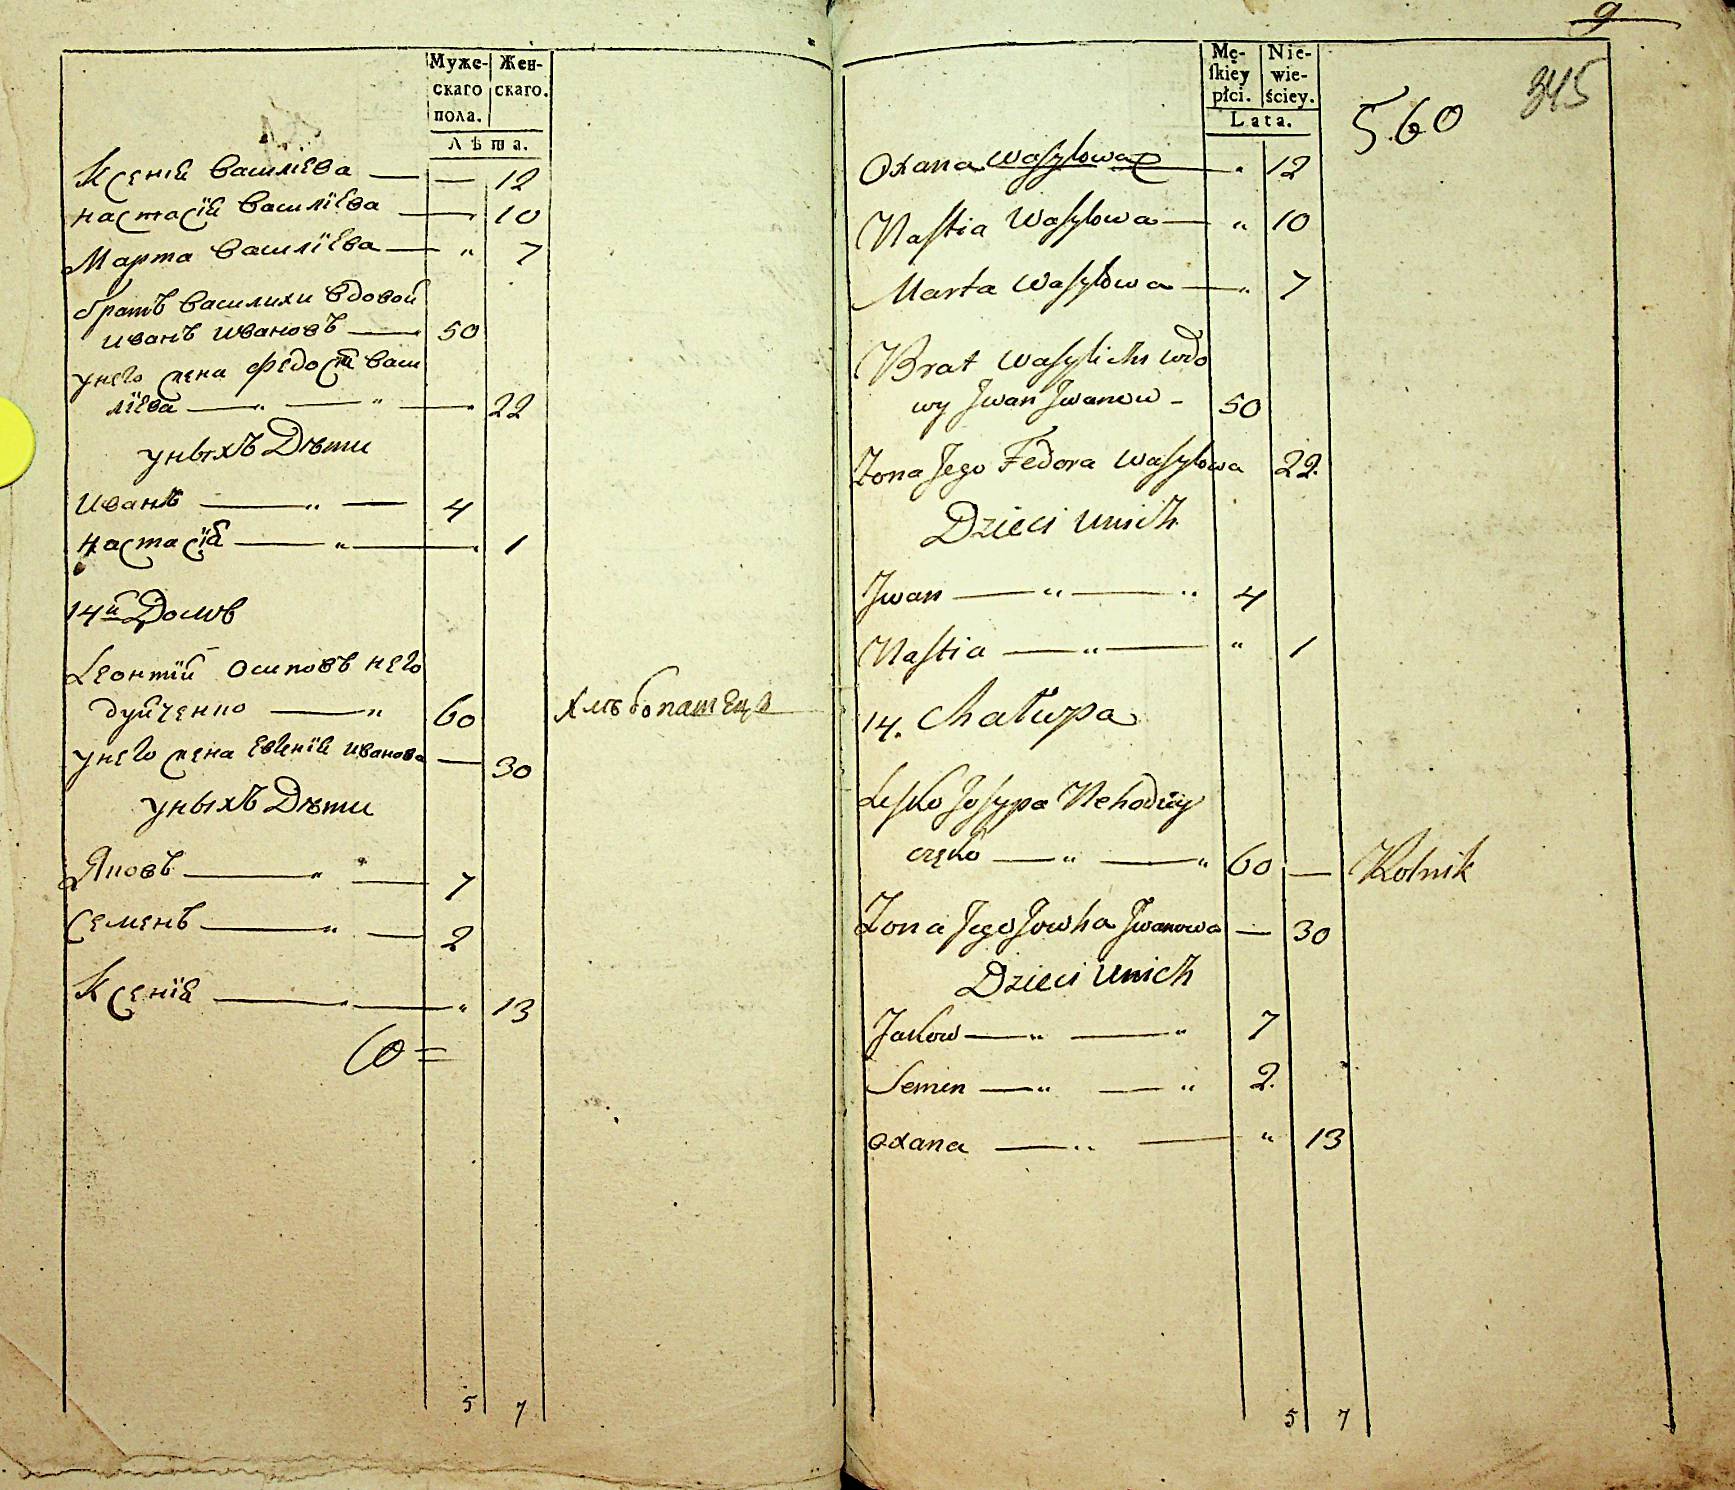 Муже-
скаго
пола.
Жен-
скаго.
Лѣта.
Ксенія Василіева — — 12
Настасія Василіева — 10
Марта Василіева — " 7
братъ Василихи вдовой
иванъ ивановъ — 50
унего жена Федося Васи
ліева — " — " — 22
уныхъ Дѣти
иванъ — " — 4
настасія — " — 1
14й Домъ
Леонтій Осиповъ него
дуйченко — " 60 хлѣбопашецъ
унего жена Евгенія иванова — 30
уныхъ Дѣти
Яковъ — " — 7
Семенъ — " — 2
Ксенія — " — " 13
5 7
9
345
560
Mę-
skiey
płci.
Nie-
wie-
ściey.
Lata.
Oxana Wasylowa — " 12
Nastia Wasylowa — " 10
Marta Wasylowa — " 7
Brat Wasylichi wdo
wy Jwan Jwanow - 50
Żona Jego Fedora Wasylowa 22
Dzieci unich
Jwan — " — " 4
Nastia — " — " 1
14. Chałupa
Lesko Josypa Nehoduy
częko — " — " 60 — Rolnik
Żona Jego Jowha Jwanowa — 30
Dzieci unich
Jakow — " — " 7
Semen — " — " 2.
oxana — " — " 13
5 7